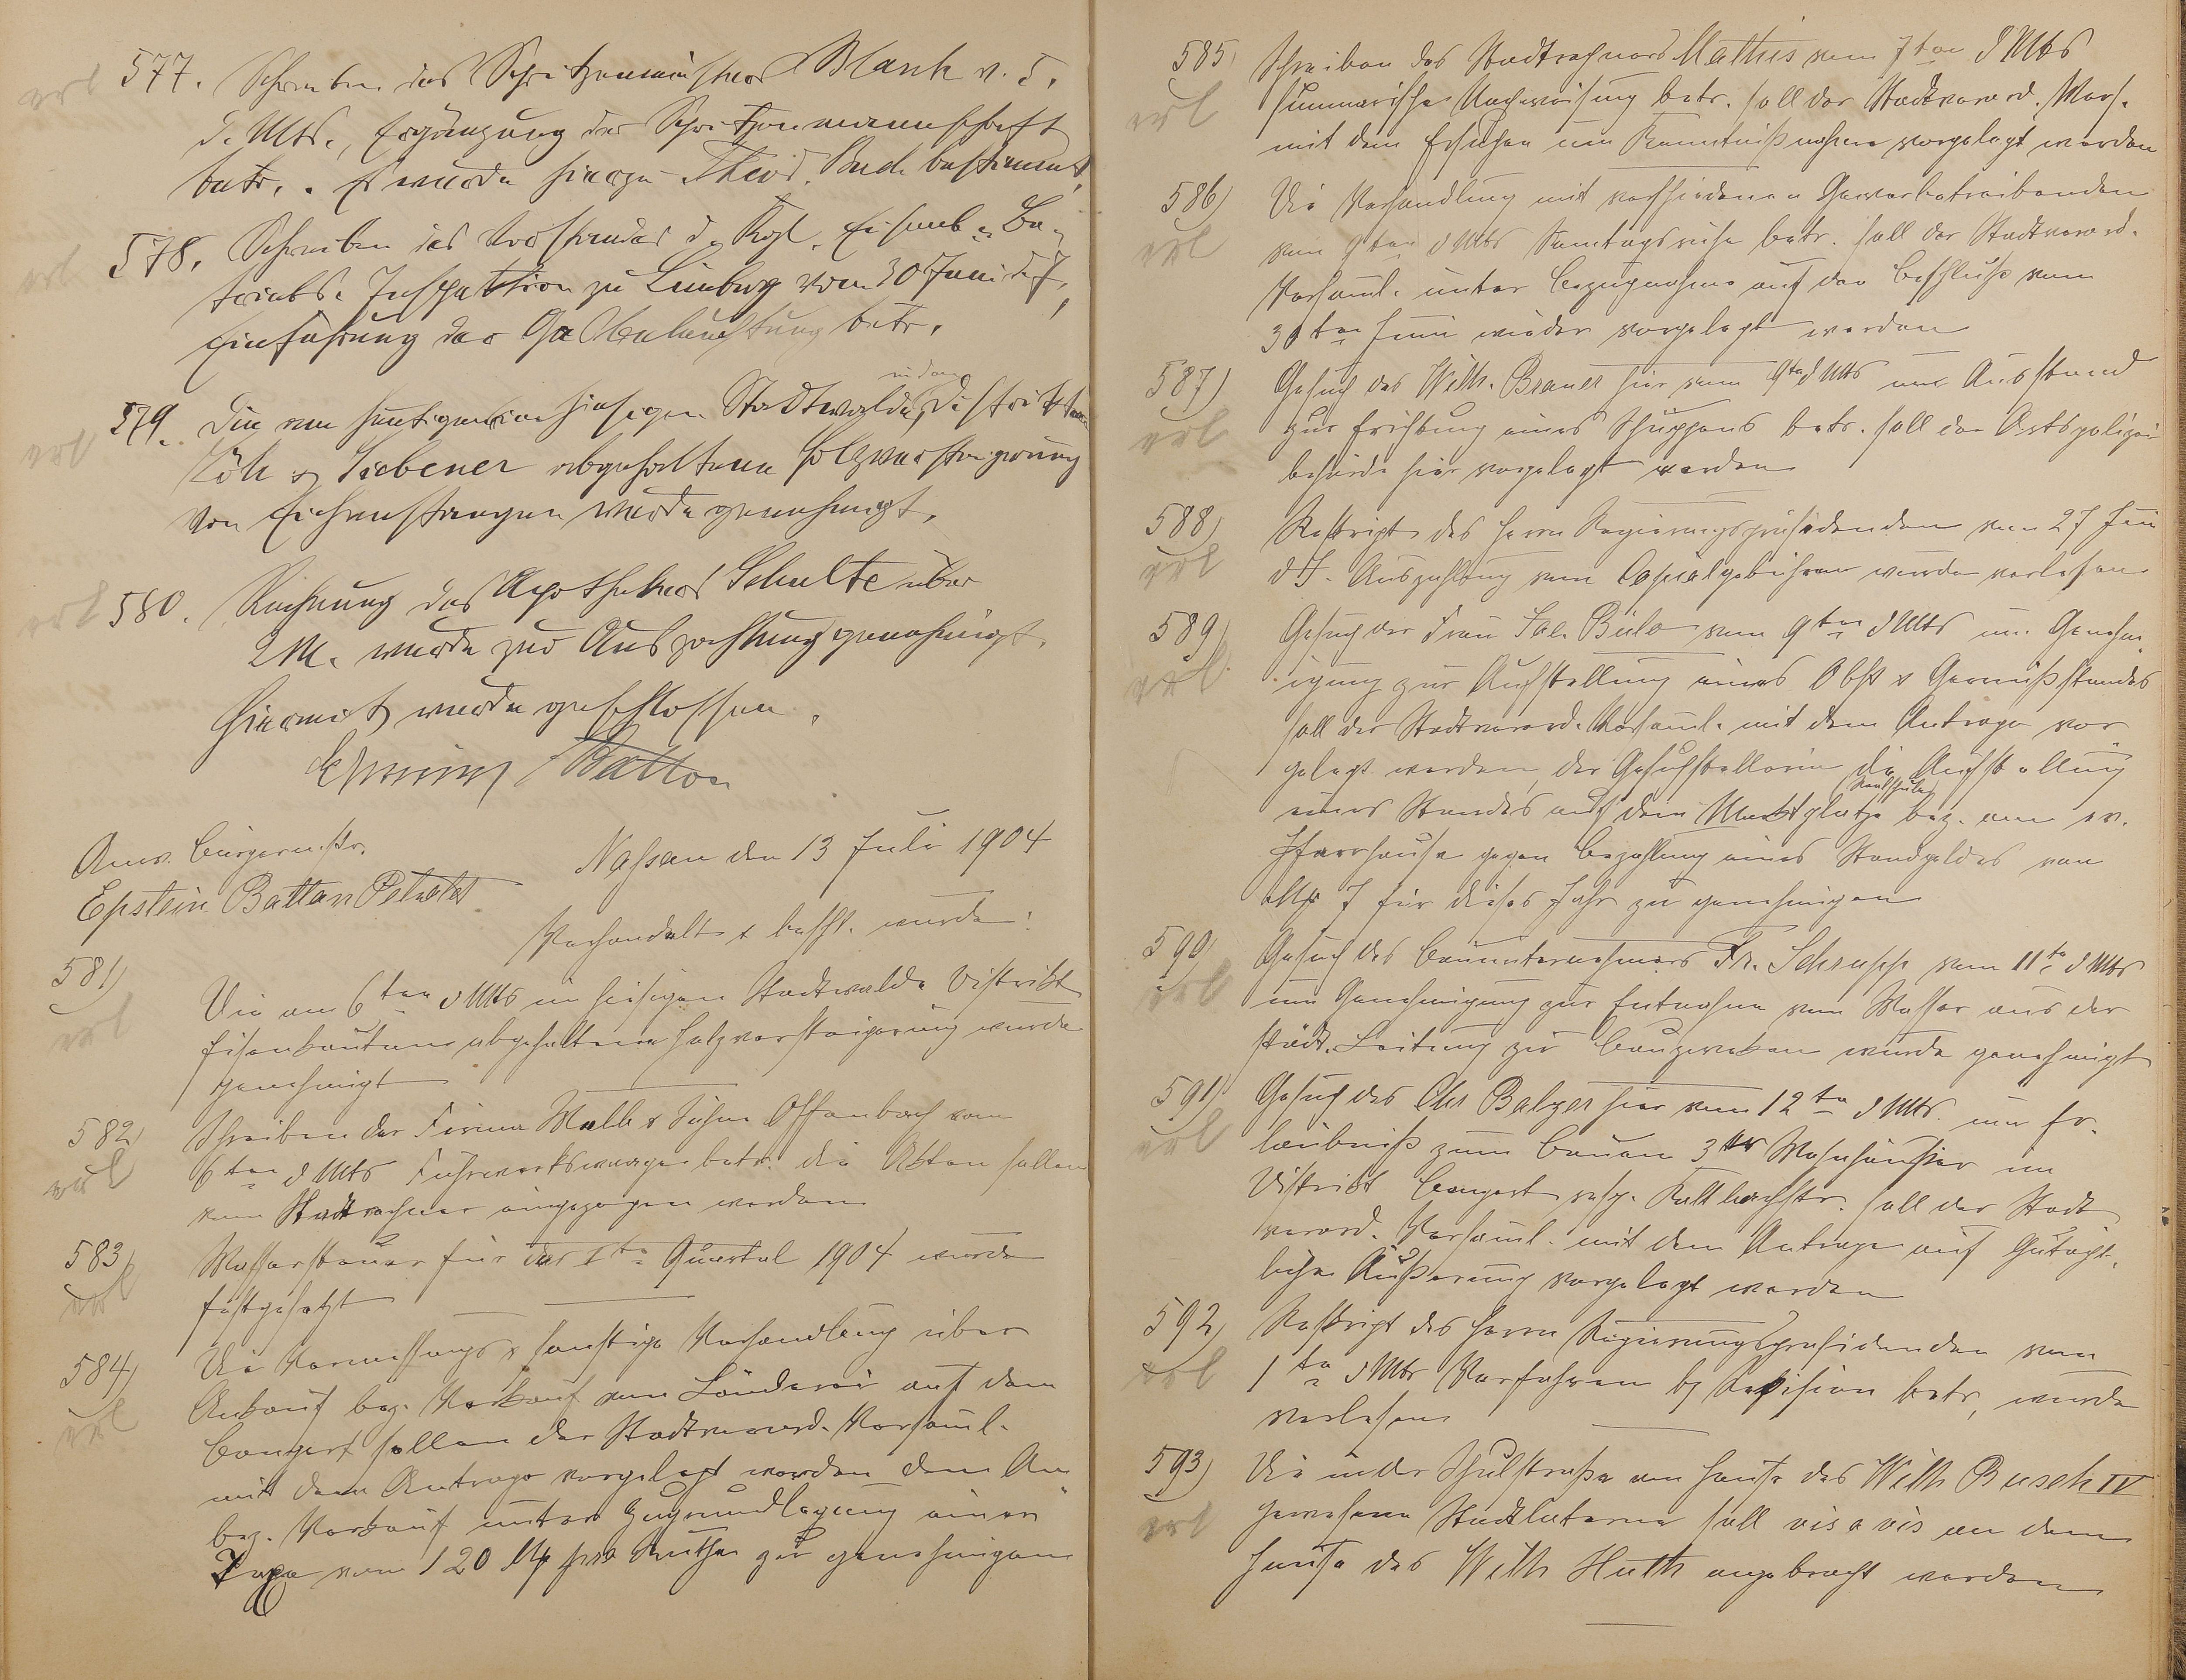 erl 577. Schreiben des Spritzenmeisters Blank v. 5.
d. Mts., Ergänzung der Spritzenmannschaft
betr.. Es wurde hierzu Theod. Buch bestimmt.
erl 578. Schreiben des Vorstandes d. Kgl. Eisenb. Be-
triebs. Inspektion zu Limburg vom 30 Juni d. J.,
Einführung der Gasbeleuchtung betr.
in den
erl 579. Die am heutigen im hiesigen Stadtwalde, Distrikten
Löh & Siebener abgehaltene Holzversteigerung
von Eichenstangen wurde genehmigt.
erl 580. Rechnung des Apothekers Schulte über
2 M. wurde zur Auszahlung genehmigt.
Hiermit wurde geschlossen.
Batton
Anw. Bürgermstr.
Epstein Batton
Nassau den 13 Juli 1904
Verhandelt & beschl. wurde:
581)
erl
Die am 6ten d Mts im hiesigen Stadtwalde Distrikt
Eisenkauten abgehaltene Holzversteigerung wurde
genehmigt
582)
erl
Schreiben der Firma & Söhne Offenbach vom
6ten d Mts Fuhrwerkswaage betr. die Akten sollen
vom Stadtrechner eingezogen werden
583)
erl
Wassersteuer für das 1te Quartal 1904 wurde
festgesetzt
584)
erl
Die Vermessungs & sonstige Verhandlung über
Ankauf bez. Verkauf von Länderei auf dem
Bongert sollen der Stadtverord. Versaml.
mit dem Antrage vorgelegt werden dem An
bez. Verkauf unter Zugrundlegung einer
Taxe von 120 M pro Ruthe zu genehmigen
585)
erl
Schreiben des Stadtrechners Mathis vom 7ten d Mts
summarische Nachweisung betr. soll der Stadtverord. Vers.
mit dem Ersuchen um Kenntnißnahme vorgelegt werden
586)
erl
Die Verhandlung mit verschiedenen Gewerbetreibenden
vom 9ten d Mts Sonntagsruhe betr. soll der Stadtverord.
Versaml. unter Bezugnahme auf den Beschluß vom
30ten Juni wieder vorgelegt werden
587)
erl
Gesuch des Wilh. Braner hier vom 9ten d Mts um
zur Errichtung eines Schuppens betr. soll der Ortspolizei
behörde hier vorgelegt werden
588)
erl
Reskript des Herrn Regierungspräsidenden vom 27 Juni
d J. Auszahlung von Copialgebühren wurde verlesen
589)
erl
Gesuch der Frau vom 9ten d Mts um Genehm
igung zur Aufstellung eines Obst & Gemüßstandes
soll der Stadtverord. Versaml. mit dem Antrage vor
gelegt werden, der Gesuchstellerin die Aufstellung
eines Standes auf dem Marktplatze bez. am ev.
Pfarrhause gegen Bezahlung eines Standgeldes von
M 7 für dieses Jahr zu genehmigen
590)
erl
Gesuch des Bauunternehmers Fr. Schrupp vom 11ten d Mts
um Genehmigung zur Entnahme von Wasser aus der
städt. Leitung zu Bauzwecken wurde genehmigt
591)
erl
Gesuch des Chr Balzer hier vom 12ten d Mts um Er-
laubniß zum Bauen 3er Wohnhäuser im
Distrikt Bongert resp. Kaltbachstr. soll der Stadt
verord. Versaml. mit dem Antrage auf Gutacht-
liche Äußerung vorgelegt werden
592)
erl
Reskript des Herrn Regierungspräsidenden vom
1ten d Mts Verfahren bz Revision betr, wurde
verlesen
593)
erl
Die in der Schulstraße am Hause des Wilh Busch IV
gewesene Stadtlaterne soll vis a vis an dem
Hause des Wilh Huth angebracht werden